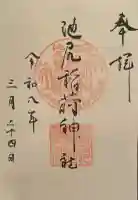 奉拝
池尻稲荷神社
令和八年
三月二十四日